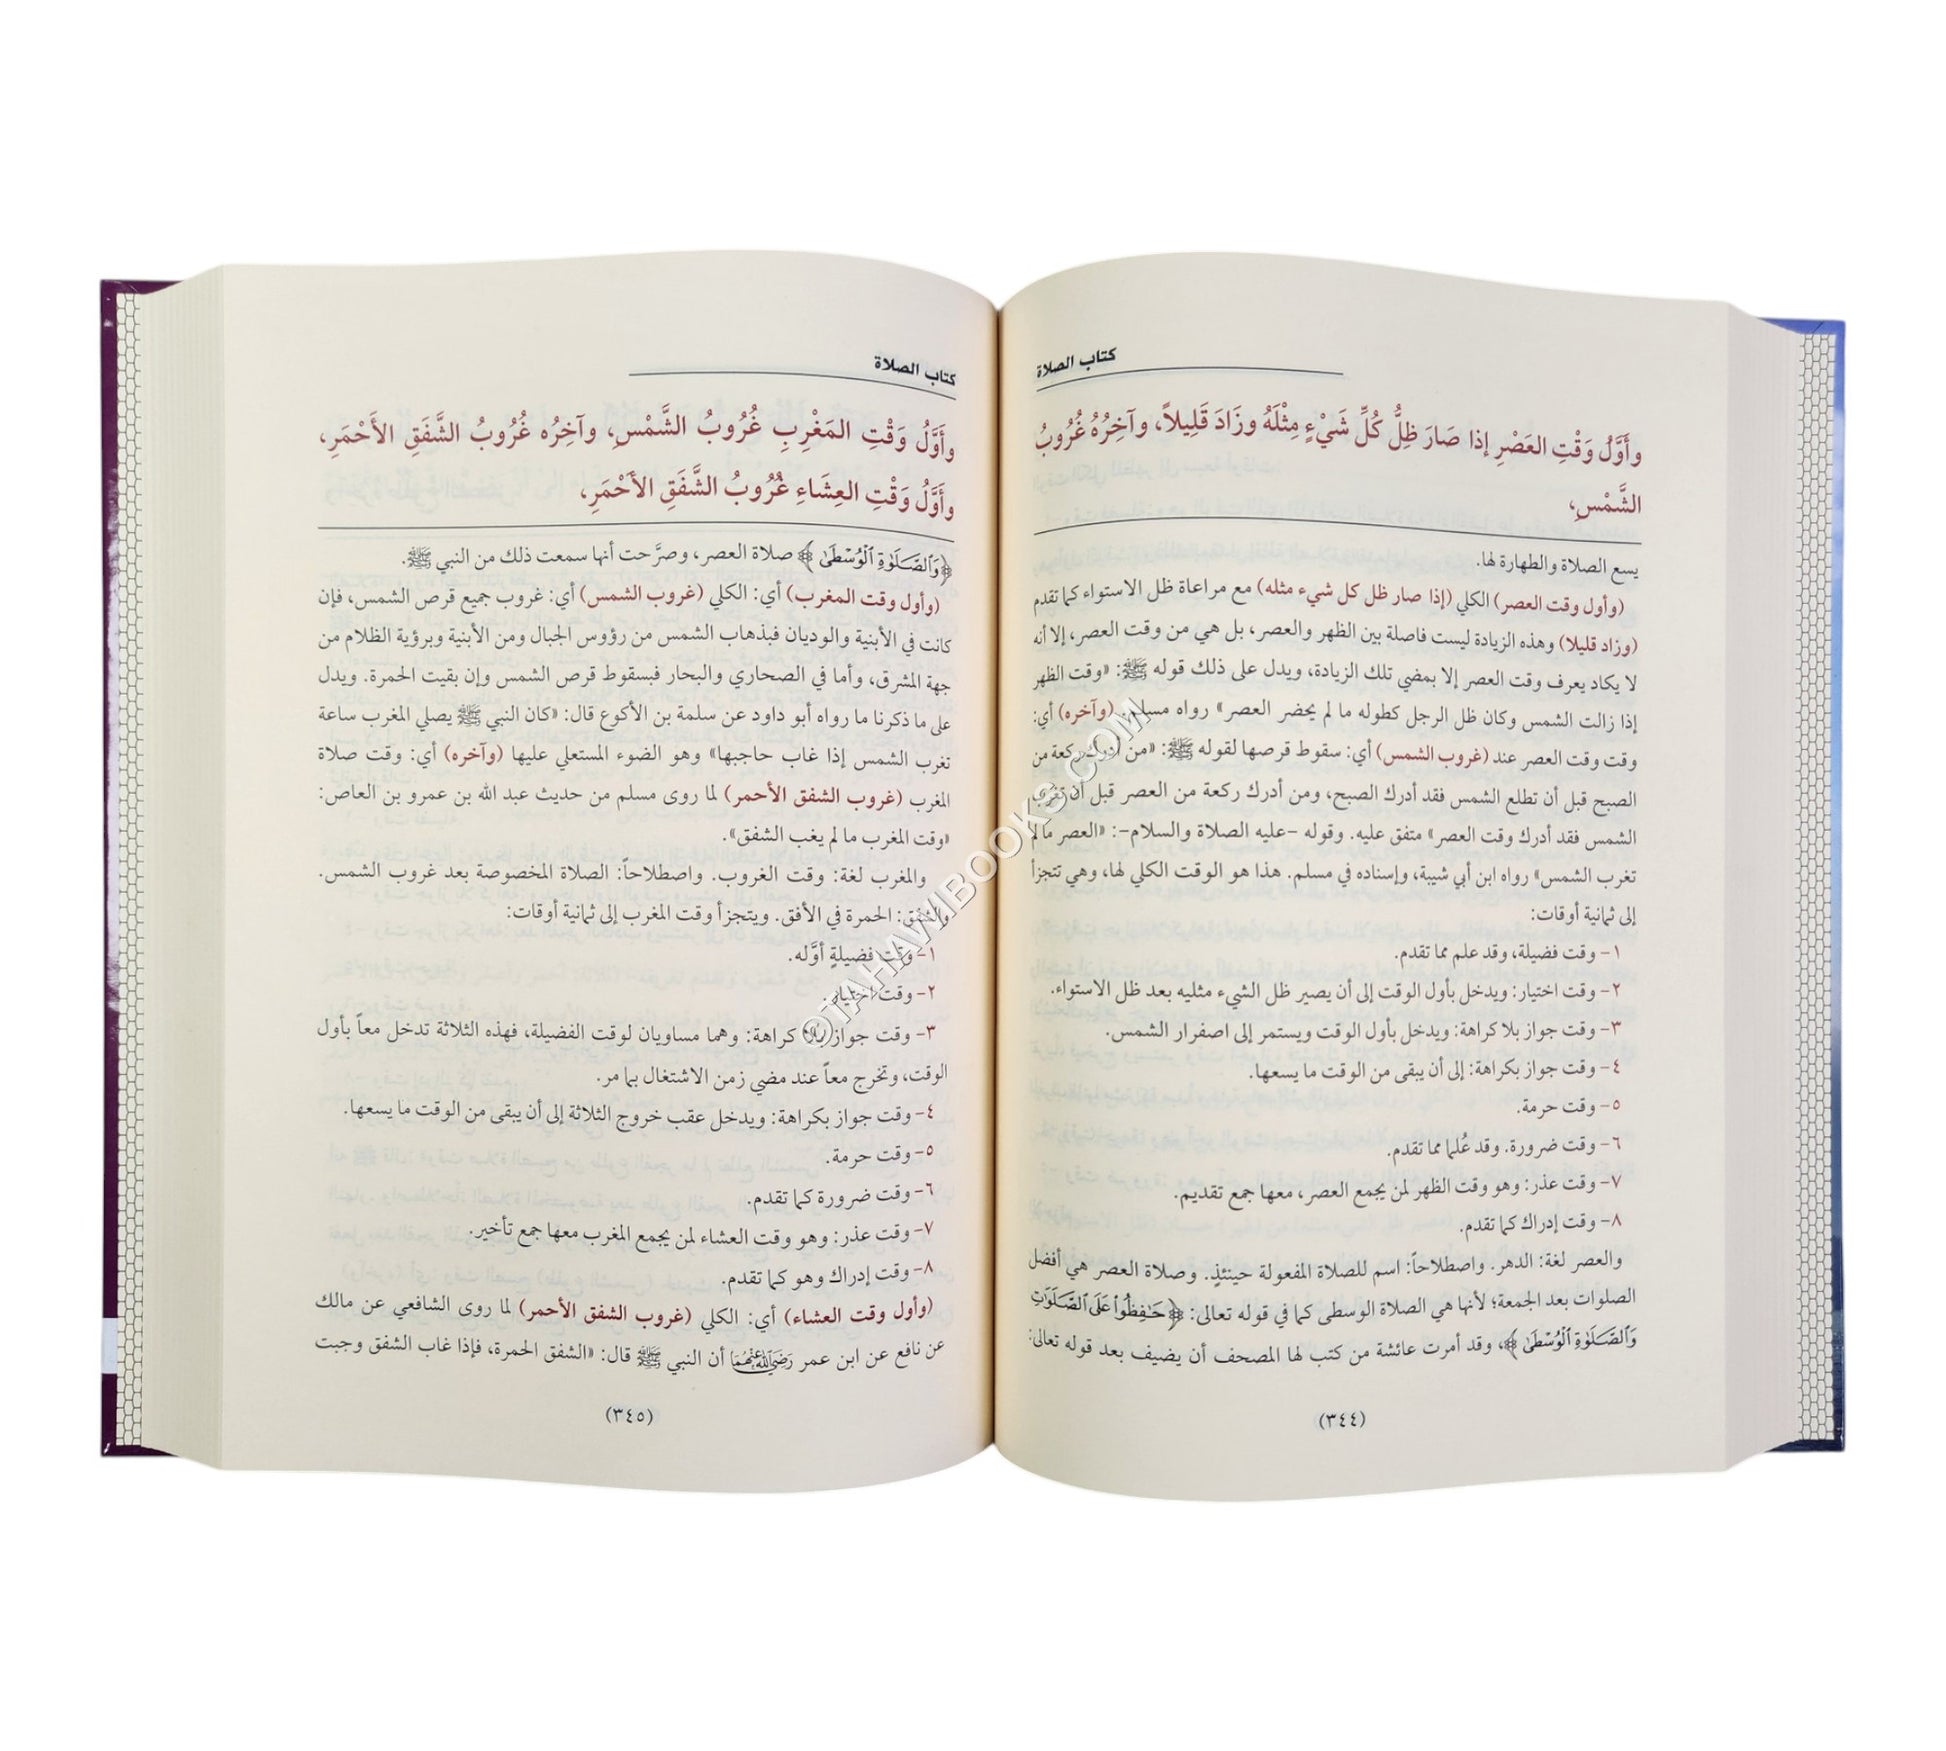 كتاب الصلاة
وأَوَّلُ وَقْتِ العَصْرِ إذا صَارَ ظِلُّ كُلِّ شَيْءٍ مِثْلَهُ وزَادَ قَلِيلاً، وآخِرُهُ غُرُوبُ
الشَّمْسِ،
يسع الصلاة والطهارة لها.
(وأول وقت العصر) الكلي (إذا صار ظل كل شيء مثله) مع مراعاة ظل الاستواء كما تقدم
(وزاد قليلا) وهذه الزيادة ليست فاصلة بين الظهر والعصر، بل هي من وقت العصر، إلا أنه
لا يكاد يعرف وقت العصر إلا بمضي تلك الزيادة، ويدل على ذلك قوله ﷺ: «وقت الظهر
إذا زالت الشمس وكان ظل الرجل كطوله ما لم يحضر العصر» رواه مسلم. (وآخره) أي:
وقت وقت العصر عند (غروب الشمس) أي: سقوط قرصها لقوله ﷺ: «من أدرك ركعة من
الصبح قبل أن تطلع الشمس فقد أدرك الصبح، ومن أدرك ركعة من العصر قبل أن تغرب
الشمس فقد أدرك وقت العصر» متفق عليه. وقوله -عليه الصلاة والسلام-: «العصر ما لم
تغرب الشمس» رواه ابن أبي شيبة، وإسناده في مسلم. هذا هو الوقت الكلي لها، وهي تتجزأ
إلى ثمانية أوقات:
١- وقت فضيلة، وقد علم مما تقدم.
٢- وقت اختيار: ويدخل بأول الوقت إلى أن يصير ظل الشيء مثليه بعد ظل الاستواء.
٣- وقت جواز بلا كراهة: ويدخل بأول الوقت ويستمر إلى اصفرار الشمس.
٤- وقت جواز بكراهة: إلى أن يبقى من الوقت ما يسعها.
٥- وقت حرمة.
٦- وقت ضرورة. وقد عُلما مما تقدم.
٧- وقت عذر: وهو وقت الظهر لمن يجمع العصر، معها جمع تقديم.
٨- وقت إدراك كما تقدم.
والعصر لغة: الدهر. واصطلاحاً: اسم للصلاة المفعولة حينئذٍ. وصلاة العصر هي أفضل
الصلوات بعد الجمعة؛ لأنها هي الصلاة الوسطى كما في قوله تعالى: ﴿حَـٰفِظُوا۟ عَلَى ٱلصَّلَوَٰتِ
وَٱلصَّلَوٰةِ ٱلْوُسْطَىٰ﴾، وقد أمرت عائشة من كتب لها المصحف أن يضيف بعد قوله تعالى:
(٣٤٤)
كتاب الصلاة
وأَوَّلُ وَقْتِ المَغْرِبِ غُرُوبُ الشَّمْسِ، وآخِرُه غُرُوبُ الشَّفَقِ الأَحْمَرِ،
وأَوَّلُ وَقْتِ العِشَاءِ غُرُوبُ الشَّفَقِ الأَحْمَرِ،
﴿وَٱلصَّلَوٰةِ ٱلْوُسْطَىٰ﴾ صلاة العصر، وصرَّحت أنها سمعت ذلك من النبي ﷺ.
(وأول وقت المغرب) أي: الكلي (غروب الشمس) أي: غروب جميع قرص الشمس، فإن
كانت في الأبنية والوديان فبذهاب الشمس من رؤوس الجبال ومن الأبنية وبرؤية الظلام من
جهة المشرق، وأما في الصحاري والبحار فبسقوط قرص الشمس وإن بقيت الحمرة. ويدل
على ما ذكرنا ما رواه أبو داود عن سلمة بن الأكوع قال: «كان النبي ﷺ يصلي المغرب ساعة
تغرب الشمس إذا غاب حاجبها» وهو الضوء المستعلي عليها (وآخره) أي: وقت صلاة
المغرب (غروب الشفق الأحمر) لما روى مسلم من حديث عبد الله بن عمرو بن العاص:
«وقت المغرب ما لم يغب الشفق».
والمغرب لغة: وقت الغروب. واصطلاحاً: الصلاة المخصوصة بعد غروب الشمس.
والشفق: الحمرة في الأفق. ويتجزأ وقت المغرب إلى ثمانية أوقات:
١- وقت فضيلةٍ أوَّله.
٢- وقت اختيار.
٣- وقت جواز بلا كراهة: وهما مساويان لوقت الفضيلة، فهذه الثلاثة تدخل معاً بأول
الوقت، وتخرج معاً عند مضي زمن الاشتغال بما مر.
٤- وقت جواز بكراهة: ويدخل عقب خروج الثلاثة إلى أن يبقى من الوقت ما يسعها.
٥- وقت حرمة.
٦- وقت ضرورة كما تقدم.
٧- وقت عذر: وهو وقت العشاء لمن يجمع المغرب معها جمع تأخير.
٨- وقت إدراك وهو كما تقدم.
(وأول وقت العشاء) أي: الكلي (غروب الشفق الأحمر) لما روى الشافعي عن مالك
عن نافع عن ابن عمر رَضِيَ اللهُ عَنْهُمَا أن النبي ﷺ قال: «الشفق الحمرة، فإذا غاب الشفق وجبت
(٣٤٥)
©TAHAWIBOOKS.COM